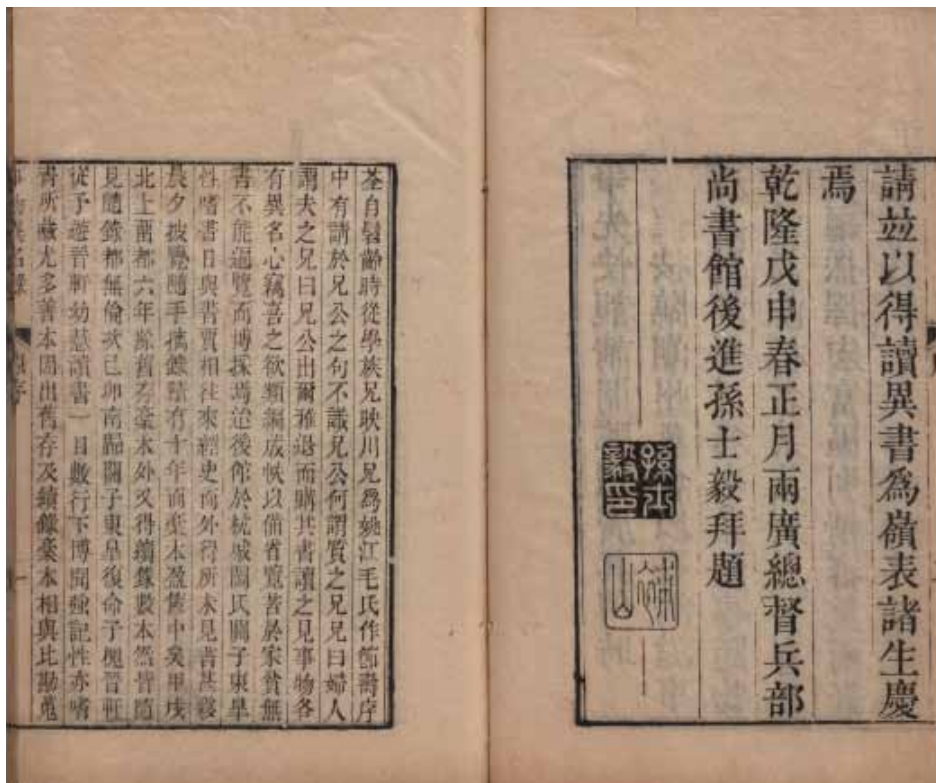 請並以得讀異書爲嶺表諸生慶
焉
乾隆戊申春正月兩廣總督兵部
尚書館後進孫士毅拜題
孫士毅印
荃自髫齡時從學族兄映川兄爲姚江毛氏作節壽序
中有請於兄公之句不識兄公何謂質之兄兄曰婦人
謂夫之兄曰兄公出爾雅退而購其書讀之見事物各
有異名心竊喜之欲類編成帙以備省覽苦於家貧無
書不能遍覽而博採焉治後館於杭城關氏關子東皋
性嗜書日與書賈相往來經史而外得所未見書甚夥
晨夕披覽隨手摘錄積有十年而稾本盈篋中矣甲戌
北上留都六年餘舊存稾本外又得續錄數本然皆隨
見隨錄都無倫次己卯南歸關子東皋復命子槐晉軒
從予遊晉軒幼慧讀書一目數行下博聞強記性亦嗜
書所藏尤多善本因出舊存及續錄稾本相與比勘蒐